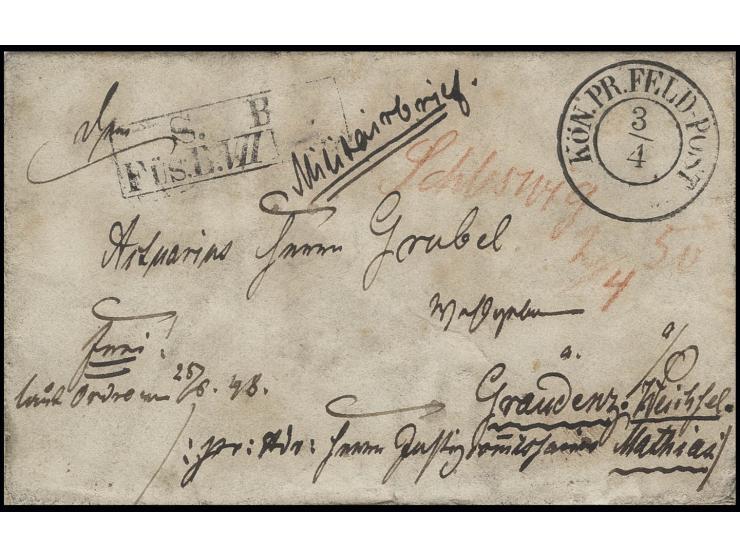 S. B
FÜS.B.VII
Militairbrief.
KÖN.PR.FELD-POST
3/4
Dem
Schleswig
2/4 50
Actuarius Herrn Grubel
Wohlgeboren
frei!
a.
a/O
laut Ordre 25/8. 48.
Graudenz. Weichsel.
:pr: Adr: Herrn Justizcommissarius Mathias/